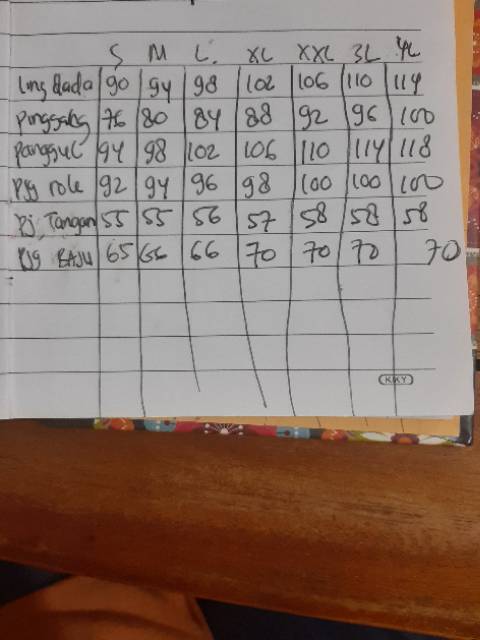 S M L. XL XXL 3L 4L
Ling dada 90 94 98 102 106 110 114
Pinggang 76 80 84 88 92 96 100
Panggul 94 98 102 106 110 114 118
Pjg role 92 94 96 98 100 100 100
Pj, Tangan 55 55 56 57 58 58 58
Pjg BAJU 65 66 66 70 70 70 70
KKY